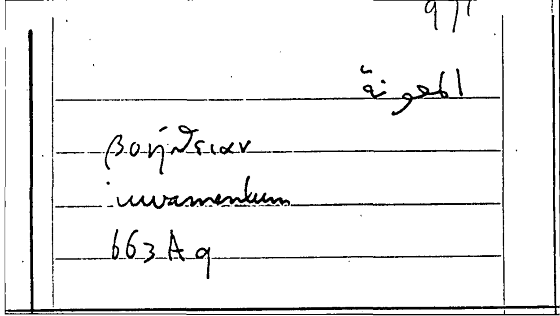 المعونة
βοήθειαν
iuvamentum
663 A 9